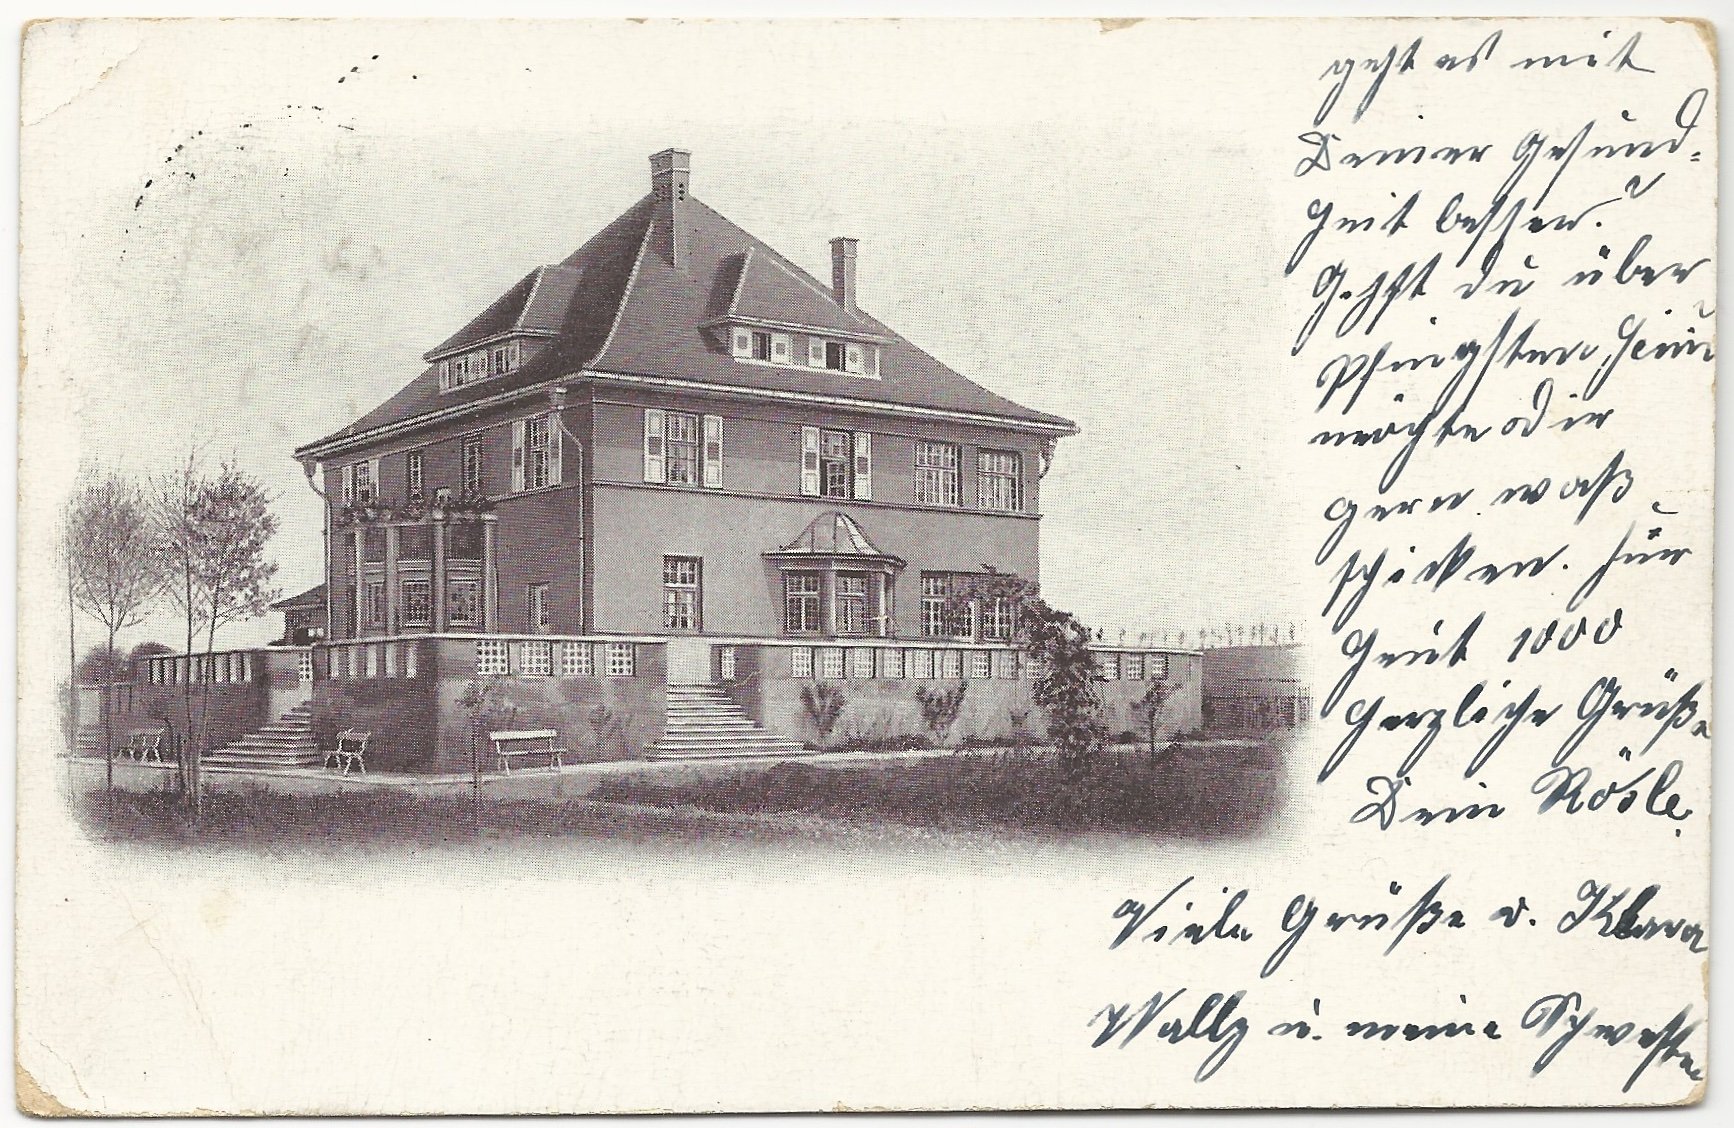 geht es mit
Deiner Gesund-
heit besser?
Gehst du über
Pfingsten heim
möchte dir
gern waß
schicken. Für
heut 1000
herzliche Grüße
Dein Rösle.
Viele Grüße v. Klara
Wally u. meine Schwester